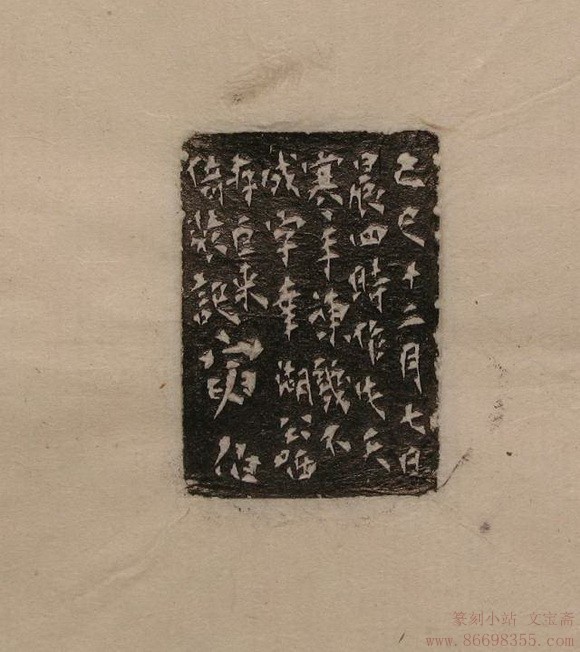 己巳十二月七日
晨四時作此兵
寒手凍幾不
成字幸湖公
存
倚裝記
篆刻小站 文宝斋
www.86698355.com